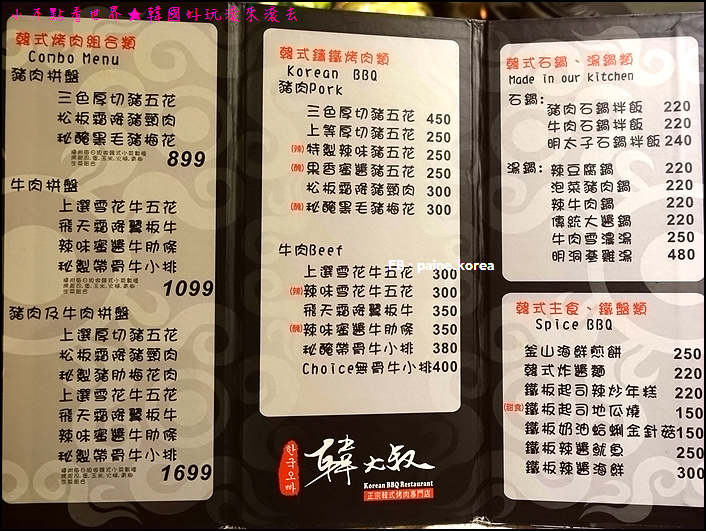 小不點看世界★韓國好玩滾來滾去
韓式烤肉組合類
Combo Menu
豬肉拼盤
三色厚切豬五花
松板霜降豬頸肉
秘醃黑毛豬梅花
899
牛肉拼盤
上選雪花牛五花
飛天霜降翼板牛
辣味蜜醬牛肋條
秘製帶骨牛小排
1099
豬肉及牛肉拼盤
上選厚切豬五花
松板霜降豬頸肉
秘製豬肋梅花肉
上選雪花牛五花
飛天霜降翼板牛
辣味蜜醬牛肋條
秘製帶骨牛小排
1699
韓式鑄鐵烤肉類
Korean BBQ
豬肉Pork
三色厚切豬五花 450
上等厚切豬五花 250
(辣)特製辣味豬五花 250
(醃)果香蜜醬豬五花 250
松板霜降豬頸肉 300
(醃)秘醃黑毛豬梅花 300
牛肉Beef
上選雪花牛五花 300
(辣)辣味雪花牛五花 300
飛天霜降翼板牛 350
(醃)辣味蜜醬牛肋條 350
秘醃帶骨牛小排 380
Choice無骨牛小排400
FB：paine.korea
한국오빠
韓大叔
Korean BBQ Restaurant
正宗韓式烤肉專門店
韓式石鍋、湯鍋類
Made in our kitchen
石鍋:
豬肉石鍋拌飯 220
牛肉石鍋拌飯 220
明太子石鍋拌飯 240
湯鍋:
辣豆腐鍋 220
泡菜豬肉鍋 220
辣牛肉鍋 220
傳統大醬鍋 220
牛肉雪濃湯 250
明洞蔘雞湯 480
韓式主食、鐵盤類
Spice BBQ
釜山海鮮煎餅 250
韓式炸醬麵 220
鐵板起司辣炒年糕 220
(甜食)鐵板起司地瓜燒 150
鐵板奶油蛤蜊金針菇150
鐵板辣醬魷魚 250
鐵板辣醬海鮮 300